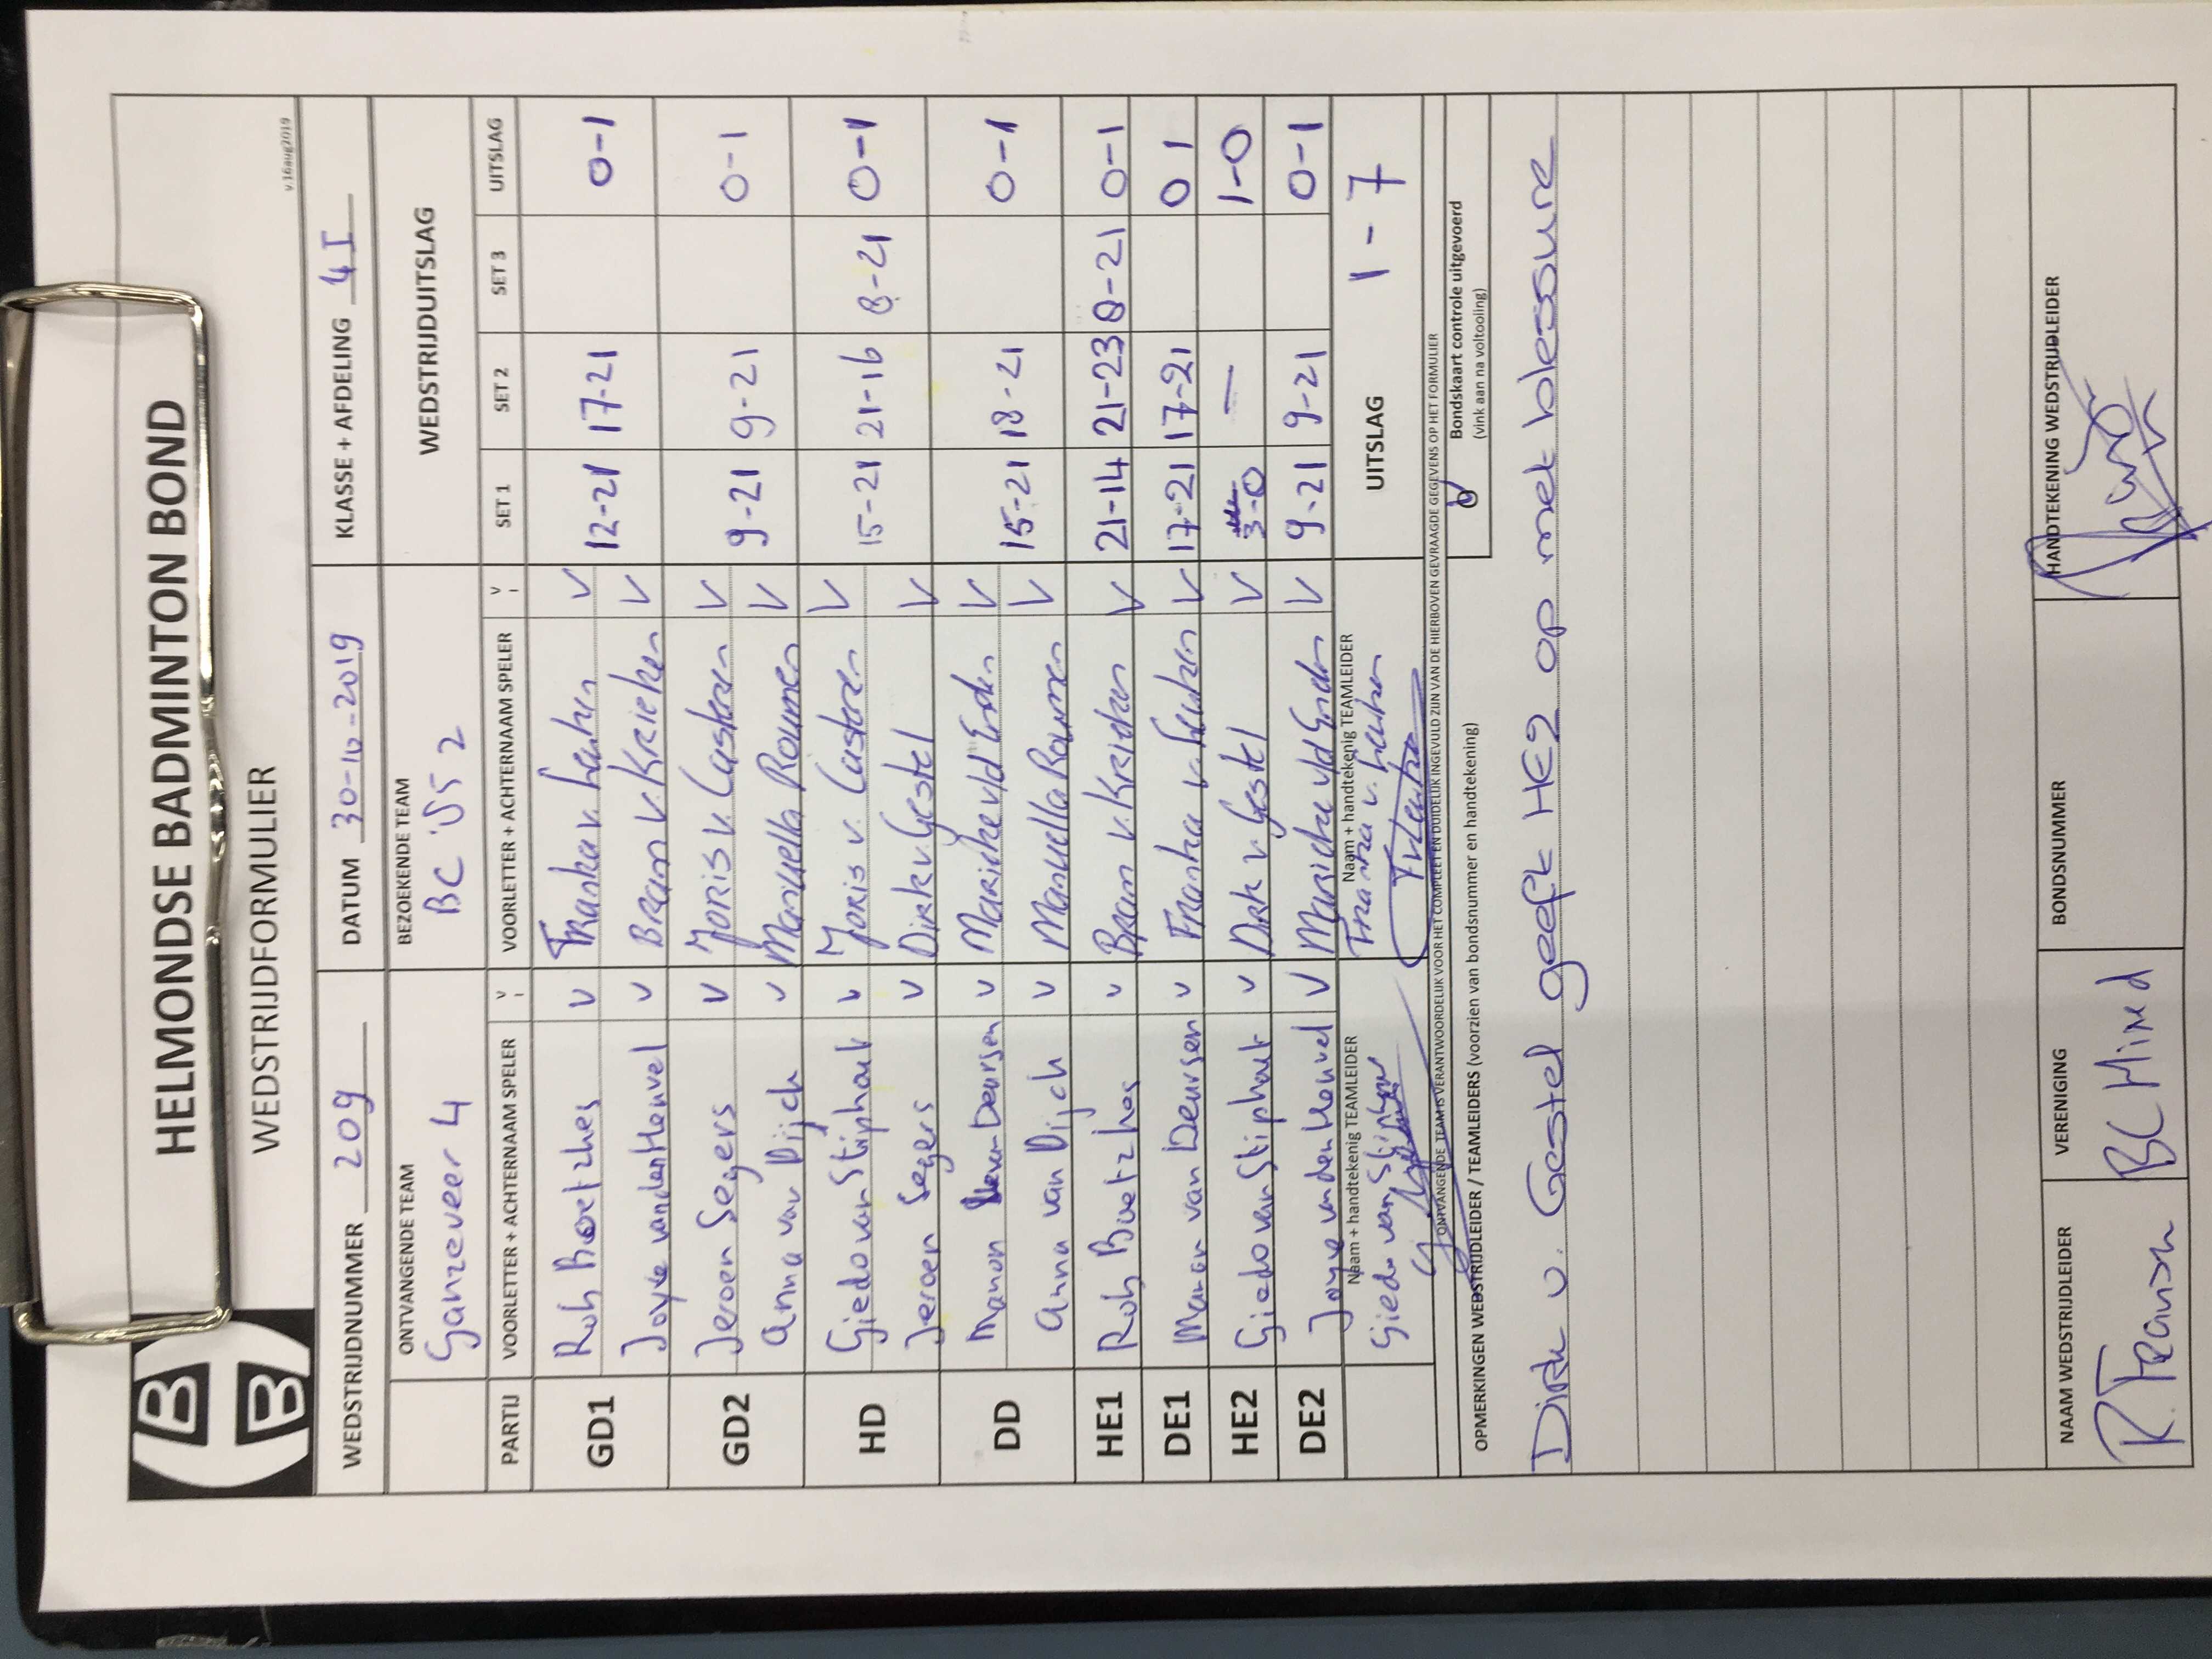 HELMONDSE BADMINTON BOND
WEDSTRIJDFORMULIER
v.16aug2019
WEDSTRIJDNUMMER 209 DATUM 30-10-2019 KLASSE + AFDELING 4I
ONTVANGENDE TEAM BEZOEKENDE TEAM WEDSTRIJDUITSLAG
Ganzeveer 4 BC '55 2
PARTIJ VOORLETTER + ACHTERNAAM SPELER V VOORLETTER + ACHTERNAAM SPELER V SET 1 SET 2 SET 3 UITSLAG
GD1 Rob Boetzkes V Franka v. Leuken V 12-21 17-21 0-1
Joyce van den Heuvel V Bram v. Krieken V
GD2 Jeroen Segers V Joris v. Casteren V 9-21 9-21 0-1
Anna van Dijck V Manuella Roumen V
HD Giedo van Stiphout V Joris v. Casteren V 15-21 21-16 8-21 0-1
Jeroen Segers V Dirk v. Gestel V
DD Manon van Deursen V Marieke vld Enden V 15-21 18-21 0-1
Anna van Dijck V Manuella Roumen V
HE1 Rob Boetzkes V Bram v. Krieken V 21-14 21-23 8-21 0-1
DE1 Manon van Deursen V Franka v. Leuken V 17-21 17-21 0 1
HE2 Giedo van Stiphout V Dirk v. Gestel V 3-0 — 1-0
DE2 Joyce van den Heuvel V Marieke vld Enden V 9-21 9-21 0-1
Naam + handtekenig TEAMLEIDER Naam + handtekenig TEAMLEIDER UITSLAG 1-7
Giedo van Stiphout Franka v. Leuken
ONTVANGENDE TEAM IS VERANTWOORDELIJK VOOR HET COMPLEET EN DUIDELIJK INGEVULD ZIJN VAN DE HIERBOVEN GEVRAAGDE GEGEVENS OP HET FORMULIER
OPMERKINGEN WEDSTRIJDLEIDER / TEAMLEIDERS (voorzien van bondsnummer en handtekening) Bondskaart controle uitgevoerd
(vink aan na voltooiing)
Dirk v. Gestel geeft HE2 op met blessure
NAAM WEDSTRIJDLEIDER VERENIGING BONDSNUMMER HANDTEKENING WEDSTRIJDLEIDER
R. Fransen BC Mierd